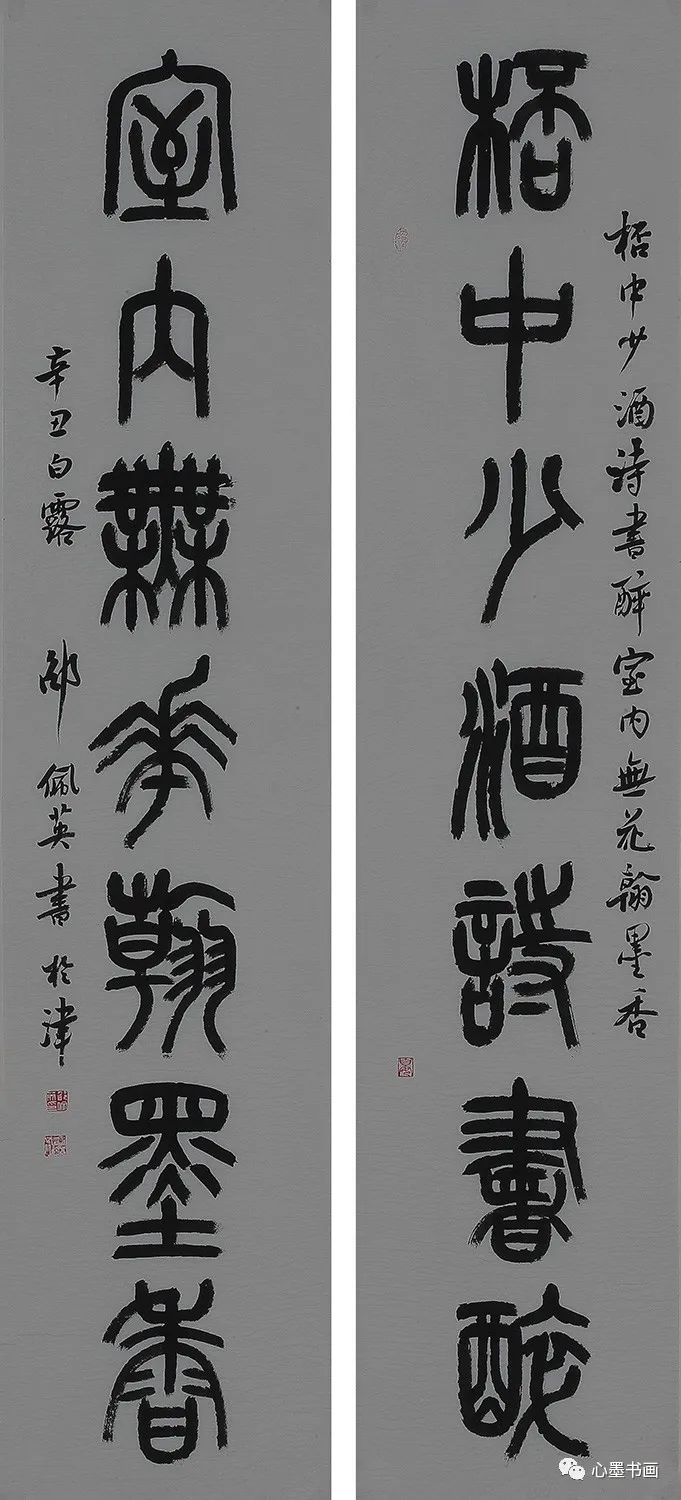 桮中少酒詩書醉室内無花翰墨香
桮中少酒詩書醉
室内無華翰墨香
辛丑白露 邵佩英書於津
心墨书画